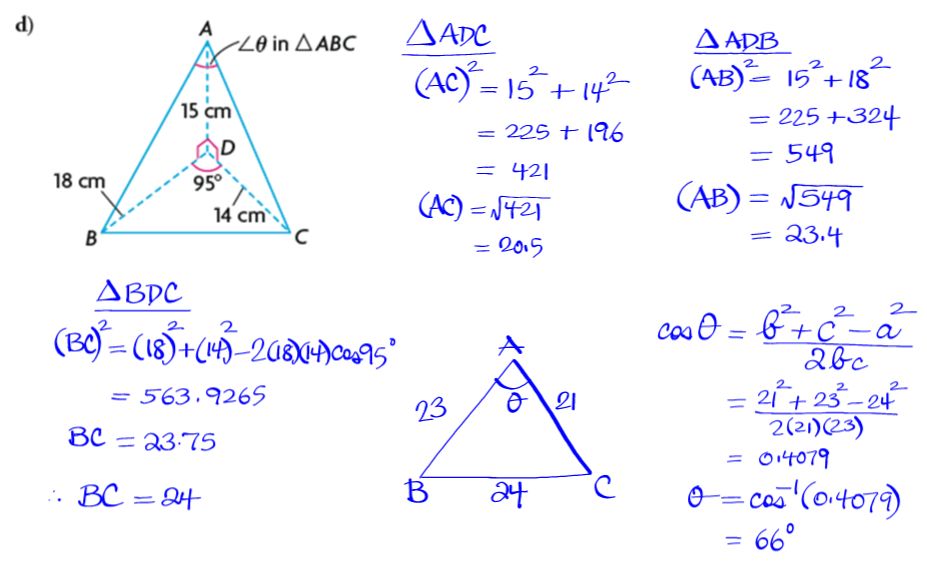 d)
A
∠θ in △ABC
15 cm
D
18 cm
95°
14 cm
B
C
△ADC
(AC)² = 15² + 14²
= 225 + 196
= 421
(AC) = √421
= 20.5
△ADB
(AB)² = 15² + 18²
= 225 + 324
= 549
(AB) = √549
= 23.4
△BDC
(BC)² = (18)² + (14)² - 2(18)(14)cos95°
= 563.9265
BC = 23.75
∴ BC = 24
A
θ
23
21
B
24
C
cosθ = b² + c² - a² / 2bc
= 21² + 23² - 24² / 2(21)(23)
= 0.4079
θ = cos⁻¹(0.4079)
= 66°